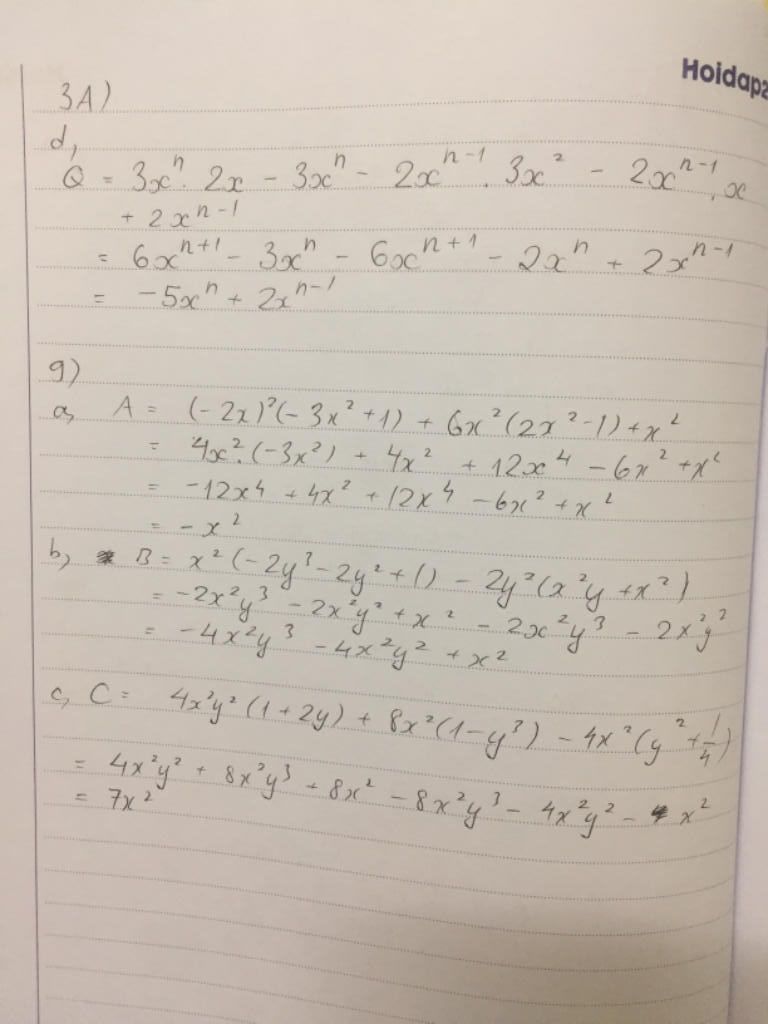 Hoidap2
3A)
d,
Q = 3xⁿ. 2x - 3xⁿ - 2xⁿ⁻¹. 3x² - 2xⁿ⁻¹. x
+ 2xⁿ⁻¹
= 6xⁿ⁺¹ - 3xⁿ - 6xⁿ⁺¹ - 2xⁿ + 2xⁿ⁻¹
= -5xⁿ + 2xⁿ⁻¹
9)
a, A = (-2x)²(-3x²+1) + 6x²(2x²-1) + x²
= 4x².(-3x²) + 4x² + 12x⁴ - 6x² + x²
= -12x⁴ + 4x² + 12x⁴ - 6x² + x²
= -x²
b, B = x²(-2y³ - 2y² + 1) - 2y²(x²y + x²)
= -2x²y³ - 2x²y² + x² - 2x²y³ - 2x²y²
= -4x²y³ - 4x²y² + x²
c, C = 4x²y²(1+2y) + 8x²(1-y³) - 4x²(y²+1/4)
= 4x²y² + 8x²y³ + 8x² - 8x²y³ - 4x²y² - x²
= 7x²